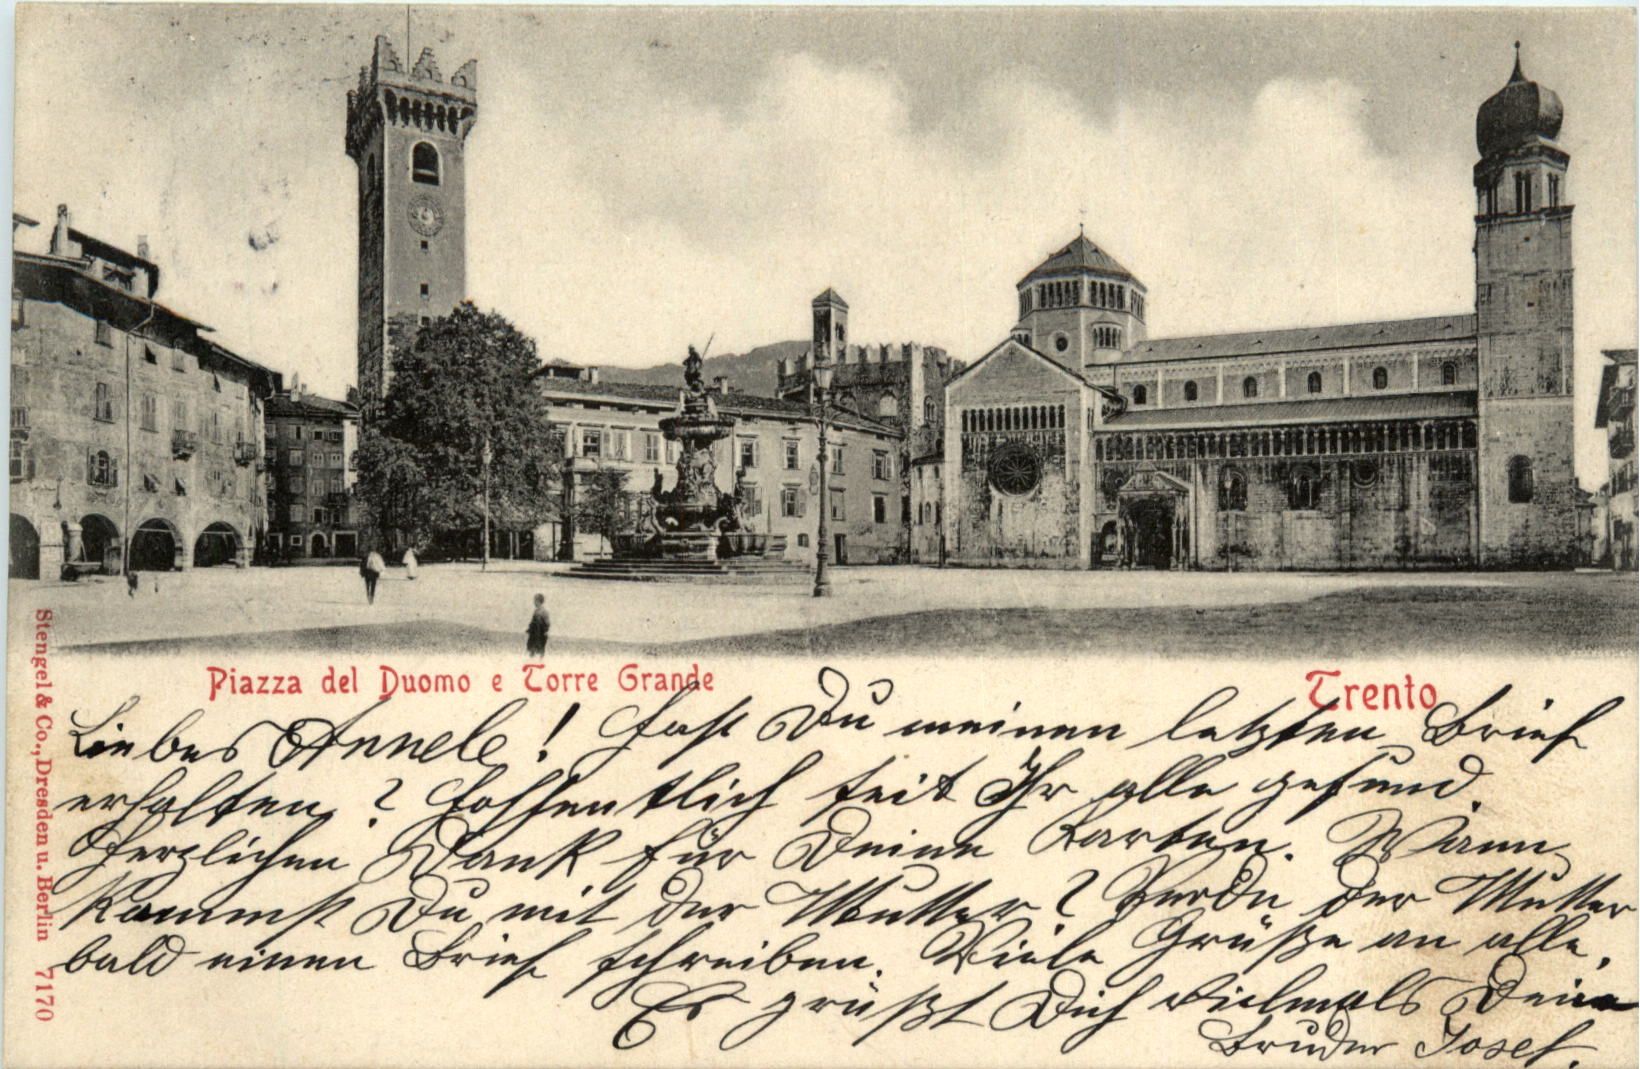 Piazza del Duomo e Torre Grande
Trento
Stengel & Co., Dresden u. Berlin 7170
Liebes Annele! Hast Du meinen letzten Brief
erhalten? Hoffentlich seit Ihr alle gesund.
Herzlichen Dank für Deine Karten. Wann
kommst Du mit der Mutter? Werde der Mutter
bald einen Brief schreiben. Viele Grüße an alle,
Es grüßt Dich vielmals Dein
Bruder Josef.